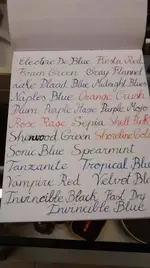 Electric Dc Blue Fiesta Red
Fern Green Gray Flannel
Lake Placid Blue Midnight Blues
Naples Blue Orange Crush
Plum Purple Haze Purple Mojo
Rose Rage Sepia Shell Pink
Sherwood Green Shoreline Gold
Sonic Blue Spearmint
Tanzanite Tropical Blue
Vampire Red Velvet Bl
Invincible Black Fast Dry
Invincible Blue